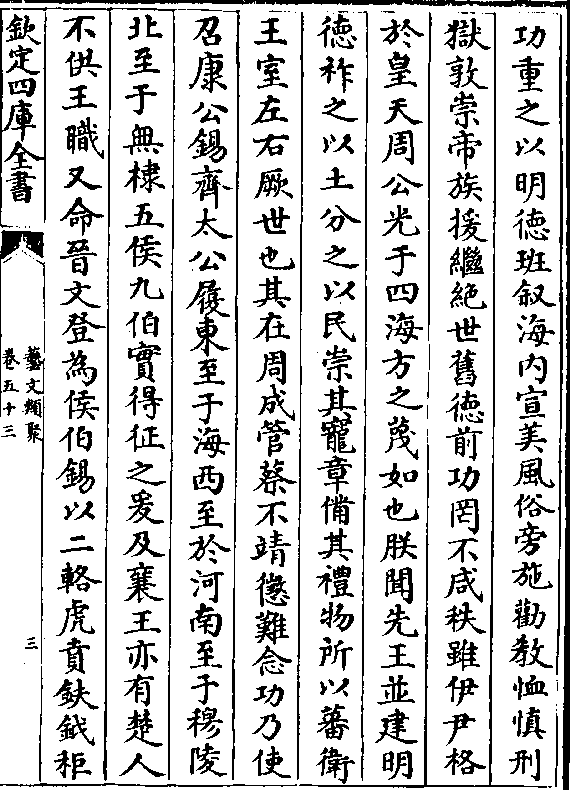 功重之以明徳班叙海内宣美風俗旁施勸教恤慎刑
獄敦崇帝族援繼絶世舊徳前功罔不咸秩雖伊尹格
於皇天周公光于四海方之蔑如也朕聞先王並建明
徳祚之以土分之以民崇其寵章備其禮物所以蕃衛
王室左右厥世也其在周成管蔡不靖懲難念功乃使
召康公錫齊太公履東至于海西至於河南至于穆陵
北至于無棣五侯九伯實得征之爰及襄王亦有楚人
不供王職又命晉文登為侯伯錫以二輅虎賁鈇鉞秬
欽定四庫全書
藝文類聚
卷五十三
三